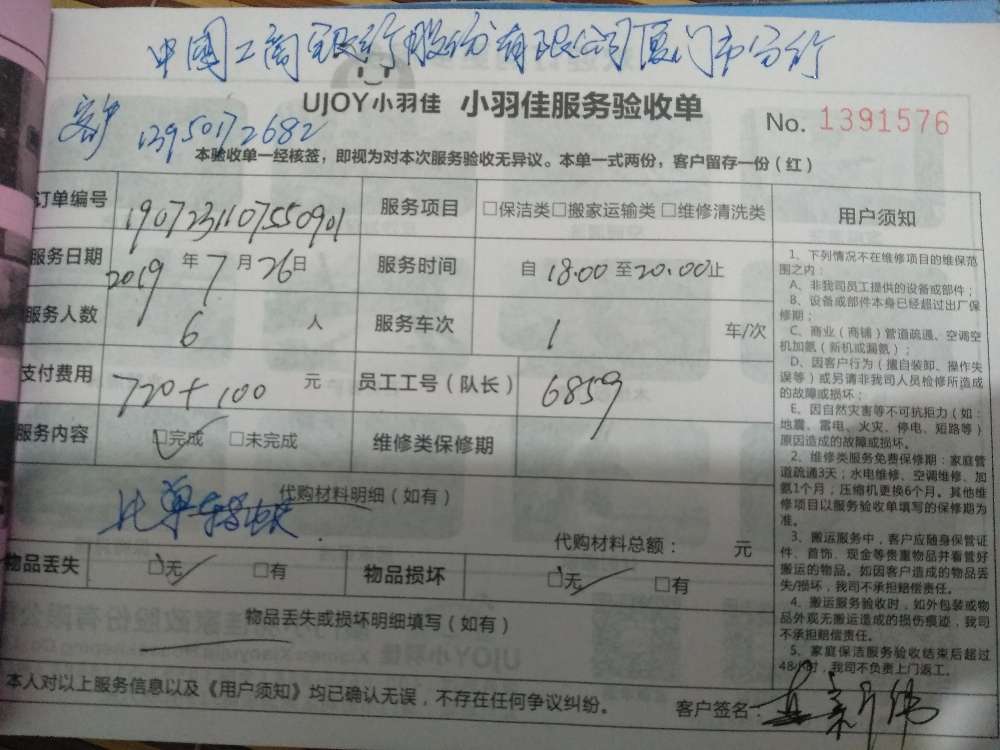 中国工商银行股份有限公司厦门市分行
UJOY小羽佳 小羽佳服务验收单
客户 13950172682
No. 1391576
本验收单一经核签，即视为对本次服务验收无异议。本单一式两份，客户留存一份（红）
订单编号 1907231107550901 服务项目 □保洁类□搬家运输类□维修清洗类
服务日期 2019年7月26日 服务时间 自18.00至20.00止
服务人数 6人 服务车次 1车/次
支付费用 720+100元 员工工号（队长） 6859
服务内容 □完成 □未完成 维修类保修期
代购材料明细（如有）
此单
代购材料总额： 元
物品丢失 □无 □有 物品损坏 □无 □有
物品丢失或损坏明细填写（如有）
用户须知
1、下列情况不在维修项目的维保范
围之内：
A、非我司员工提供的设备或部件；
B、设备或部件本身已经超过出厂保
修期；
C、商业（商铺）管道疏通、空调空
机加氨（新机或漏氨）；
D、因客户行为（擅自装卸、操作失
误等）或另请非我司人员检修所造成
的故障或损坏；
E、因自然灾害等不可抗拒力（如：
地震、雷电、火灾、停电、短路等）
原因造成的故障或损坏。
2、维修类服务免费保修期：家庭管
道疏通3天；水电维修、空调维修、加
氨1个月，压缩机更换6个月。其他维
修项目以服务验收单填写的保修期为
准。
3、搬运服务中，客户应随身保管证
件、首饰、现金等贵重物品并看管好
搬运的物品。如因客户造成的物品丢
失/损坏，我司不承担赔偿责任。
4、搬运服务验收时，如外包装或物
品外观无搬运造成的损伤痕迹，我司
不承担赔偿责任。
5、家庭保洁服务验收结束后超过
48小时，我司不负责上门返工。
本人对以上服务信息以及《用户须知》均已确认无误，不存在任何争议纠纷。
客户签名：